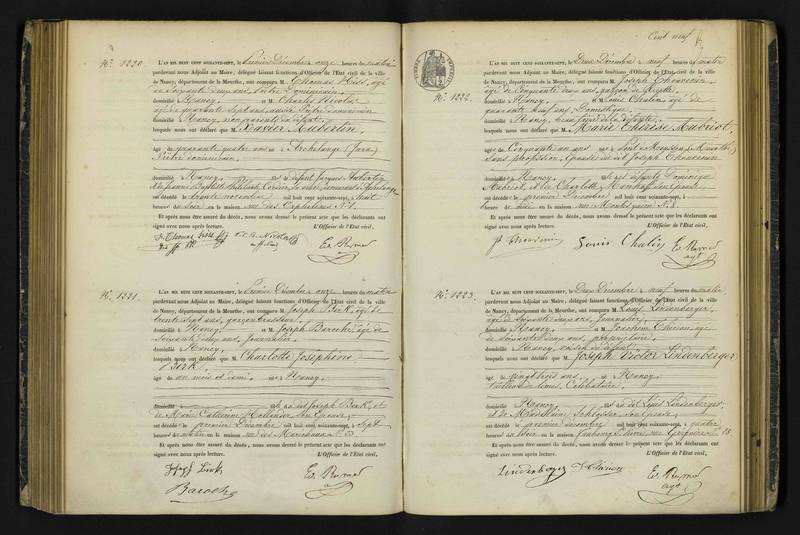 N.° 1220.
L'AN MIL HUIT CENT SOIXANTE-SEPT, le Premier Décembre onze heures du matin
pardevant nous Adjoint au Maire, délégué faisant fonctions d'Officier de l'Etat civil de la ville
de Nancy, département de la Meurthe, ont comparu M. Thomas Hiss, âgé
de Soixante deux ans, Prêtre Dominicain.
domicilié à Nancy. et M. Charles Nicolas
âgé de quarante Sept ans, aussi Prêtre dominicain
domicilié à Nancy, non parents du défunt.
lesquels nous ont déclaré que M. Xavier Aubertin.
âgé de quarante quatre ans né à Archelange (Jura)
Prêtre dominicain.
domicilié à Nancy.
est décédé le trente novembre mil huit cent soixante-sept, à huit
heures du Soir en la maison rue des Orphelines N.°
Et après nous être assuré du décès, nous avons dressé le présent acte que les déclarants ont
signé avec nous après lecture. L'Officier de l'Etat civil,
N.° 1221.
L'AN MIL HUIT CENT SOIXANTE-SEPT, le Premier Décembre onze heures du matin
pardevant nous Adjoint au Maire, délégué faisant fonctions d'Officier de l'Etat civil de la ville
de Nancy, département de la Meurthe, ont comparu M. Joseph Birk, âgé de
trente Sept ans, garçon brasseur.
domicilié à Nancy. et M. Joseph Baroche, âgé de
Soixante dix ans, Journalier.
domicilié à Nancy.
lesquels nous ont déclaré que M. Charlotte Joséphine
Birk.
âgé de un mois et demi. né à Nancy.
domicilié à fille du dit Joseph Birk, et
de Marie Catherine Hollinder, Son Epouse.
est décédé le premier Décembre mil huit cent soixante-sept, à Sept
heures du matin en la maison rue des Maréchaux N.° 33.
Et après nous être assuré du décès, nous avons dressé le présent acte que les déclarants ont
signé avec nous après lecture. L'Officier de l'Etat civil,
Joseph Birk
Baroche
Cent neuf
N.° 1222.
L'AN MIL HUIT CENT SOIXANTE-SEPT, le Deux Décembre neuf heures du matin
pardevant nous Adjoint au Maire, délégué faisant fonctions d'Officier de l'Etat civil de la ville
de Nancy, département de la Meurthe, ont comparu M. Joseph
âgé de Cinquante deux ans, garçon de
domicilié à Nancy. et M. Louis Chalin, âgé de
quarante neuf ans, Domestique.
domicilié à Nancy, beau frère de la défunte.
lesquels nous ont déclaré que M. Marie Thérèse Aubriot.
âgé de Cinquante un ans, né à
Sans profession, Epouse du dit Joseph
domicilié à Nancy. fille des défunts Dominique
Aubriot, et de Charlotte Son Epouse.
est décédé le premier Décembre mil huit cent soixante-sept, à
heures du Soir en la maison rue Montesquieu N.° 8.
Et après nous être assuré du décès, nous avons dressé le présent acte que les déclarants ont
signé avec nous après lecture. L'Officier de l'Etat civil,
Louis Chalin
N.° 1223.
L'AN MIL HUIT CENT SOIXANTE-SEPT, le Deux Décembre neuf heures du matin
pardevant nous Adjoint au Maire, délégué faisant fonctions d'Officier de l'Etat civil de la ville
de Nancy, département de la Meurthe, ont comparu M. Louis Lindenberger,
âgé de Soixante ans, Journalier.
domicilié à Nancy. et M. Thirion, âgé
de Soixante deux ans, propriétaire.
domicilié à Nancy, voisin du défunt.
lesquels nous ont déclaré que M. Joseph Victor Lindenberger
âgé de vingt trois ans, né à Nancy.
tailleur de limes, Célibataire.
domicilié à Nancy. fils du dit Louis Lindenberger,
et de Madelaine Schlosser, Son Epouse.
est décédé le premier décembre mil huit cent soixante-sept, à quatre
heures du Soir en la maison faubourg rue Grégoire N.° 18.
Et après nous être assuré du décès, nous avons dressé le présent acte que les déclarants ont
signé avec nous après lecture. L'Officier de l'Etat civil,
Lindenberger Thirion